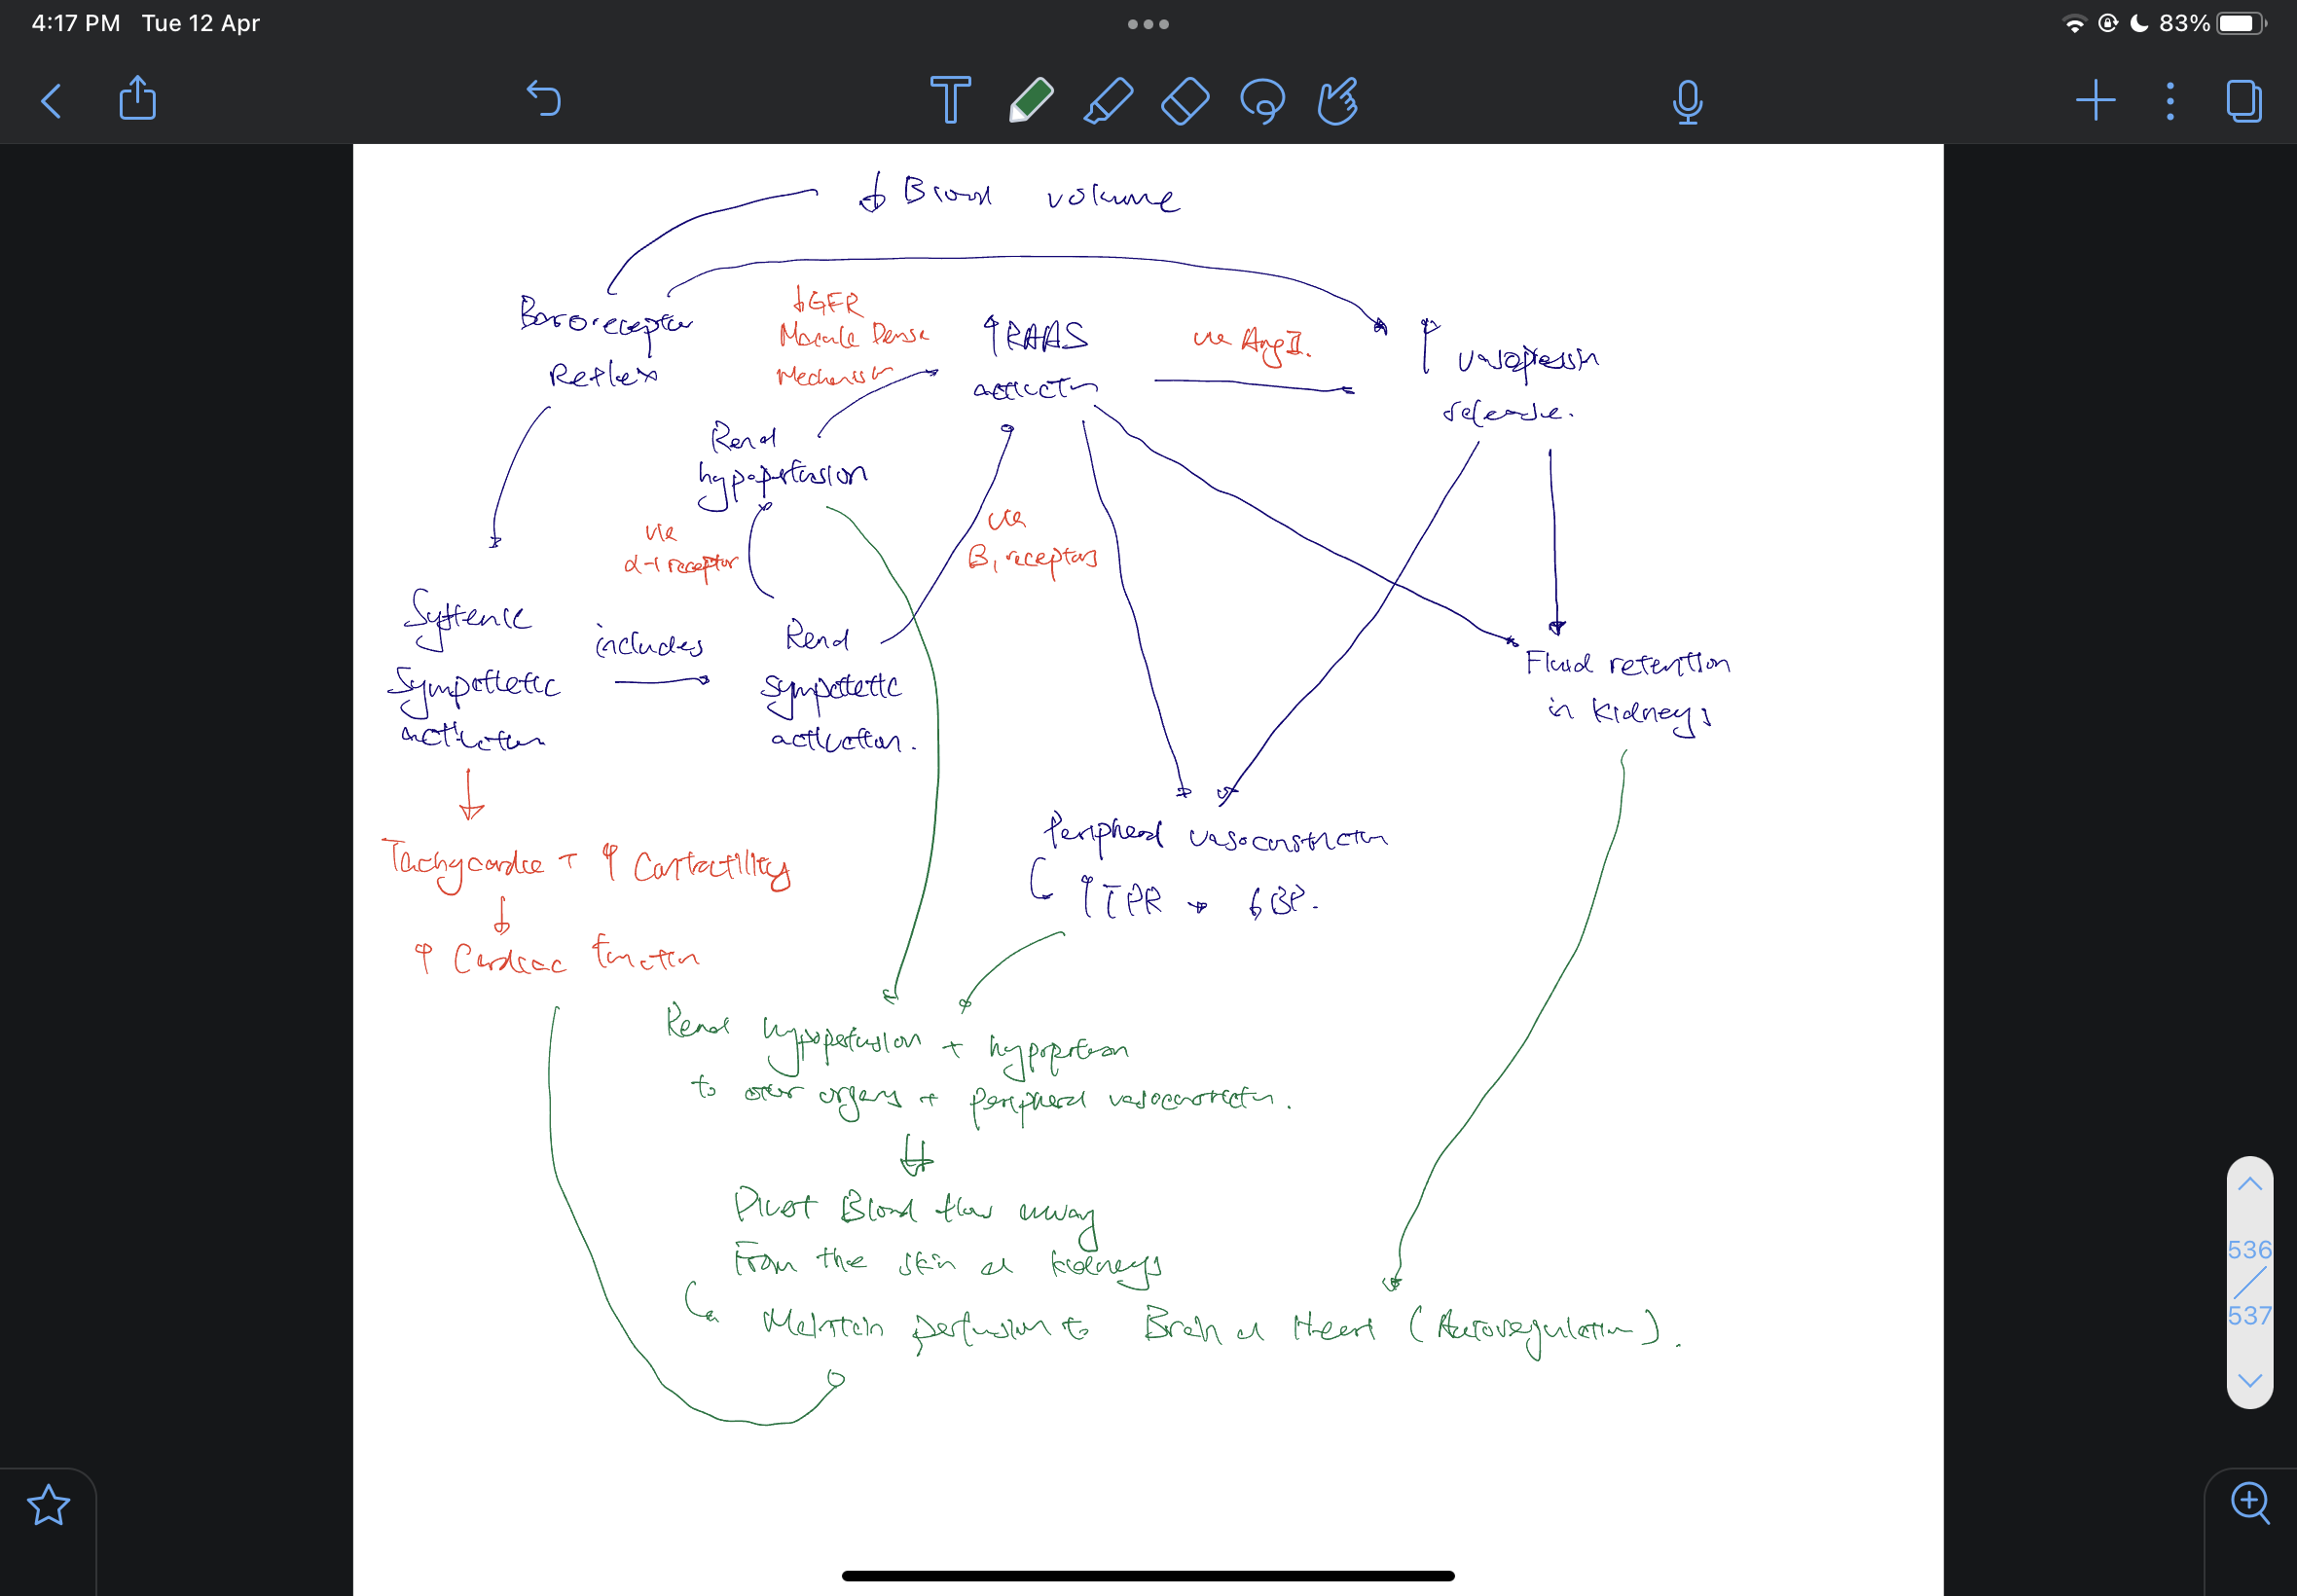 4:17 PM Tue 12 Apr
83%
↓ Blood volume
Baroreceptor
Reflex
↓GFR
Macula Densa
Mechanism
↑RAAS
activation
via Ang II.
↑ vasopressin
release.
Renal
hypoperfusion
via
α-1 receptor
via
B1 receptors
Systemic
Sympathetic
activation
includes
Renal
sympathetic
activation.
Fluid retention
in kidneys
Tachycardia + ↑ Contractility
↓
↑ Cardiac function
Peripheral vasoconstriction
↑TPR → BP.
Renal hypoperfusion + hypoperfusion
to other organs + peripheral vasoconstriction.
Pivot Blood flow away
From the skin al kidneys
Maintain perfusion to Brain al Heart (Autoregulation).
536
537